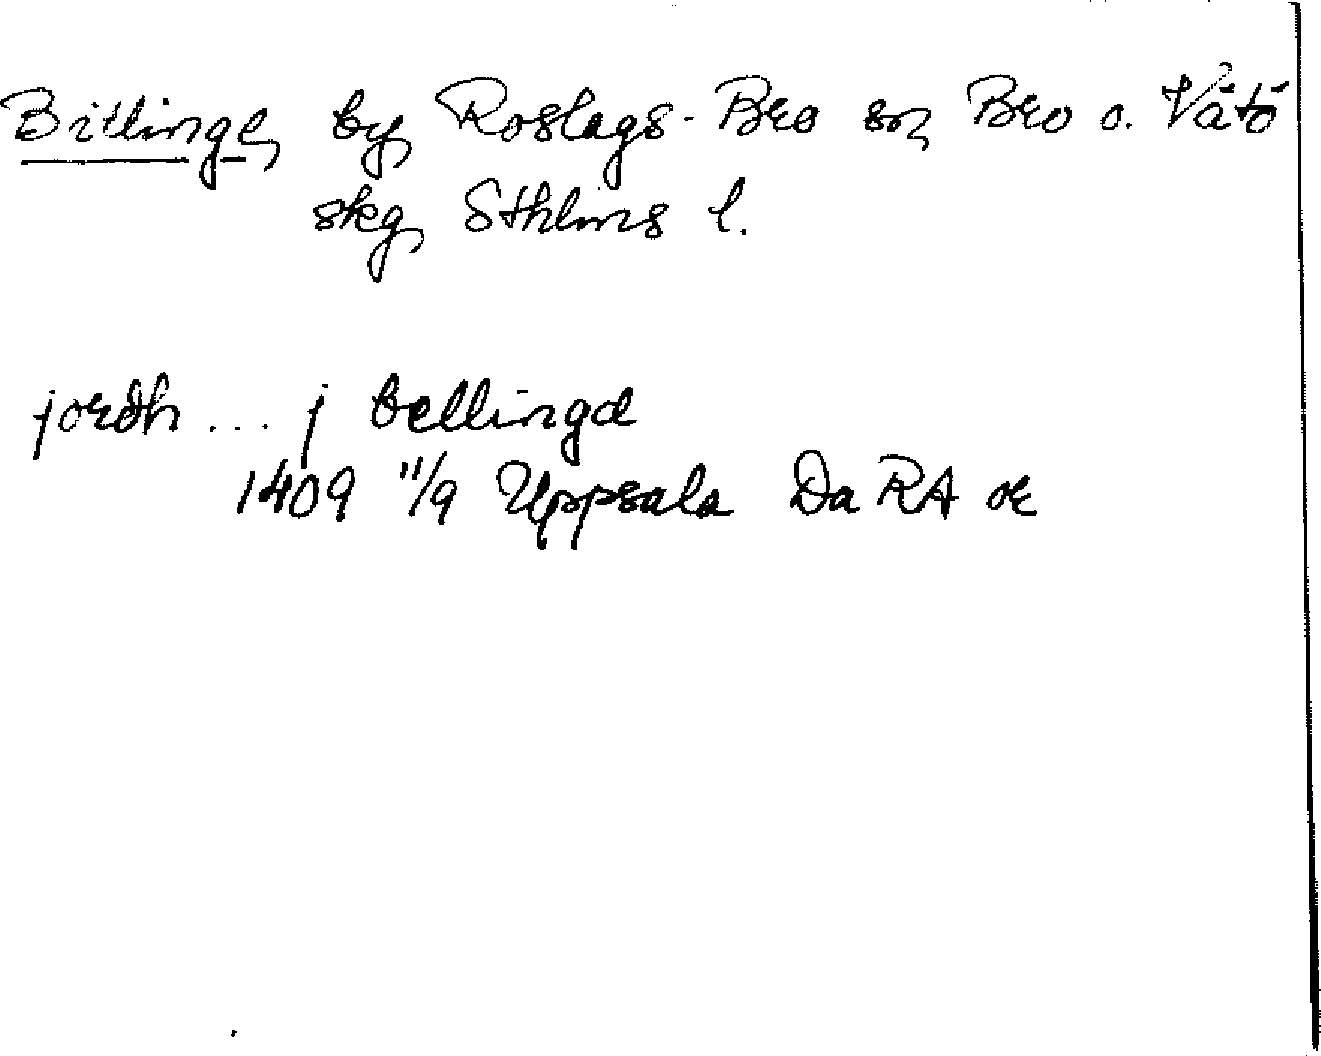 Billinge, by, Roslags-Bro sn, Bro o. Vätö
skg, Sthlms l.
jordh ... j bellingæ
1409 11/9 Uppsala Da RA or